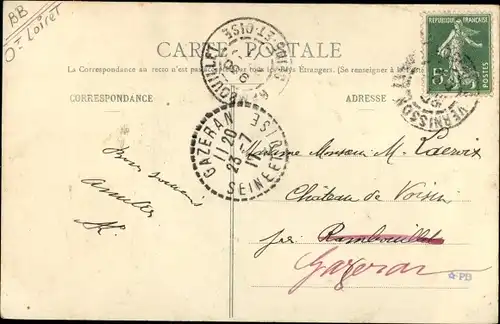 BB
Oz Loiret
CARTE POSTALE
La Correspondance au recto n'est pas acceptée par tous les Pays Étrangers. (Se renseigner à la Poste)
CORRESPONDANCE
ADRESSE
RÉPUBLIQUE FRANÇAISE
5c
POSTES
VERNISSON
SEINE-ET-OISE
GAZERAN
11 20
23 -7
17
SEINE ET OISE
Bon souvenir
amitiés
Madame Monsieur M. Lacroix
Château de Voisin
près Rambouillet
Gazeran
PB